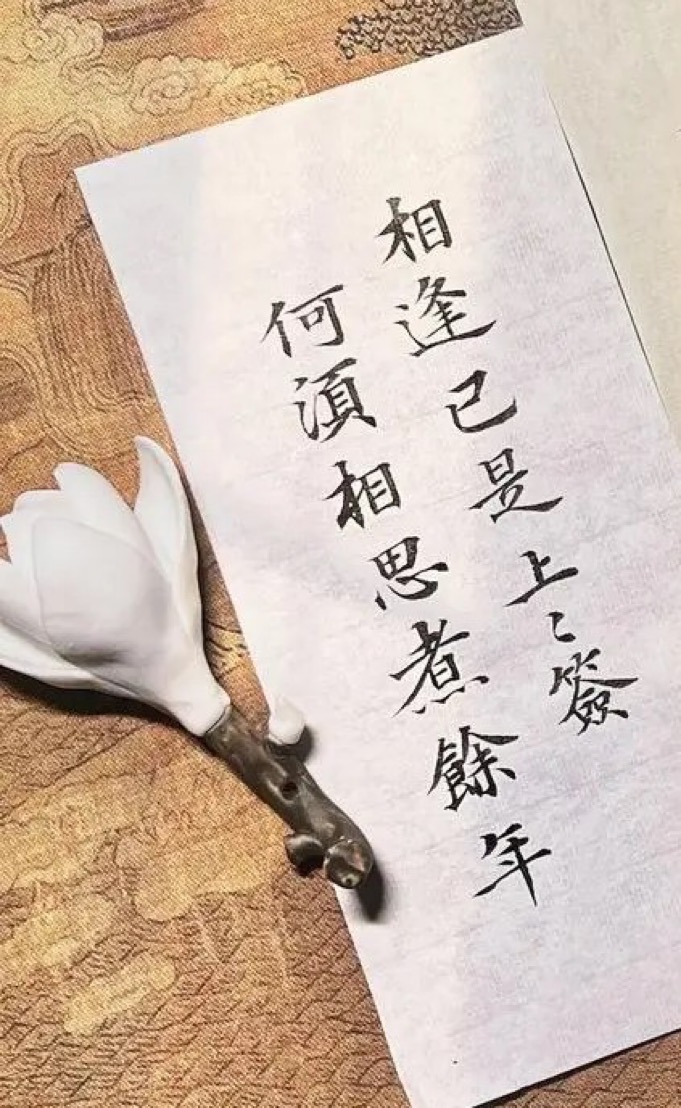 相逢已是上〻簽
何須相思煮餘年